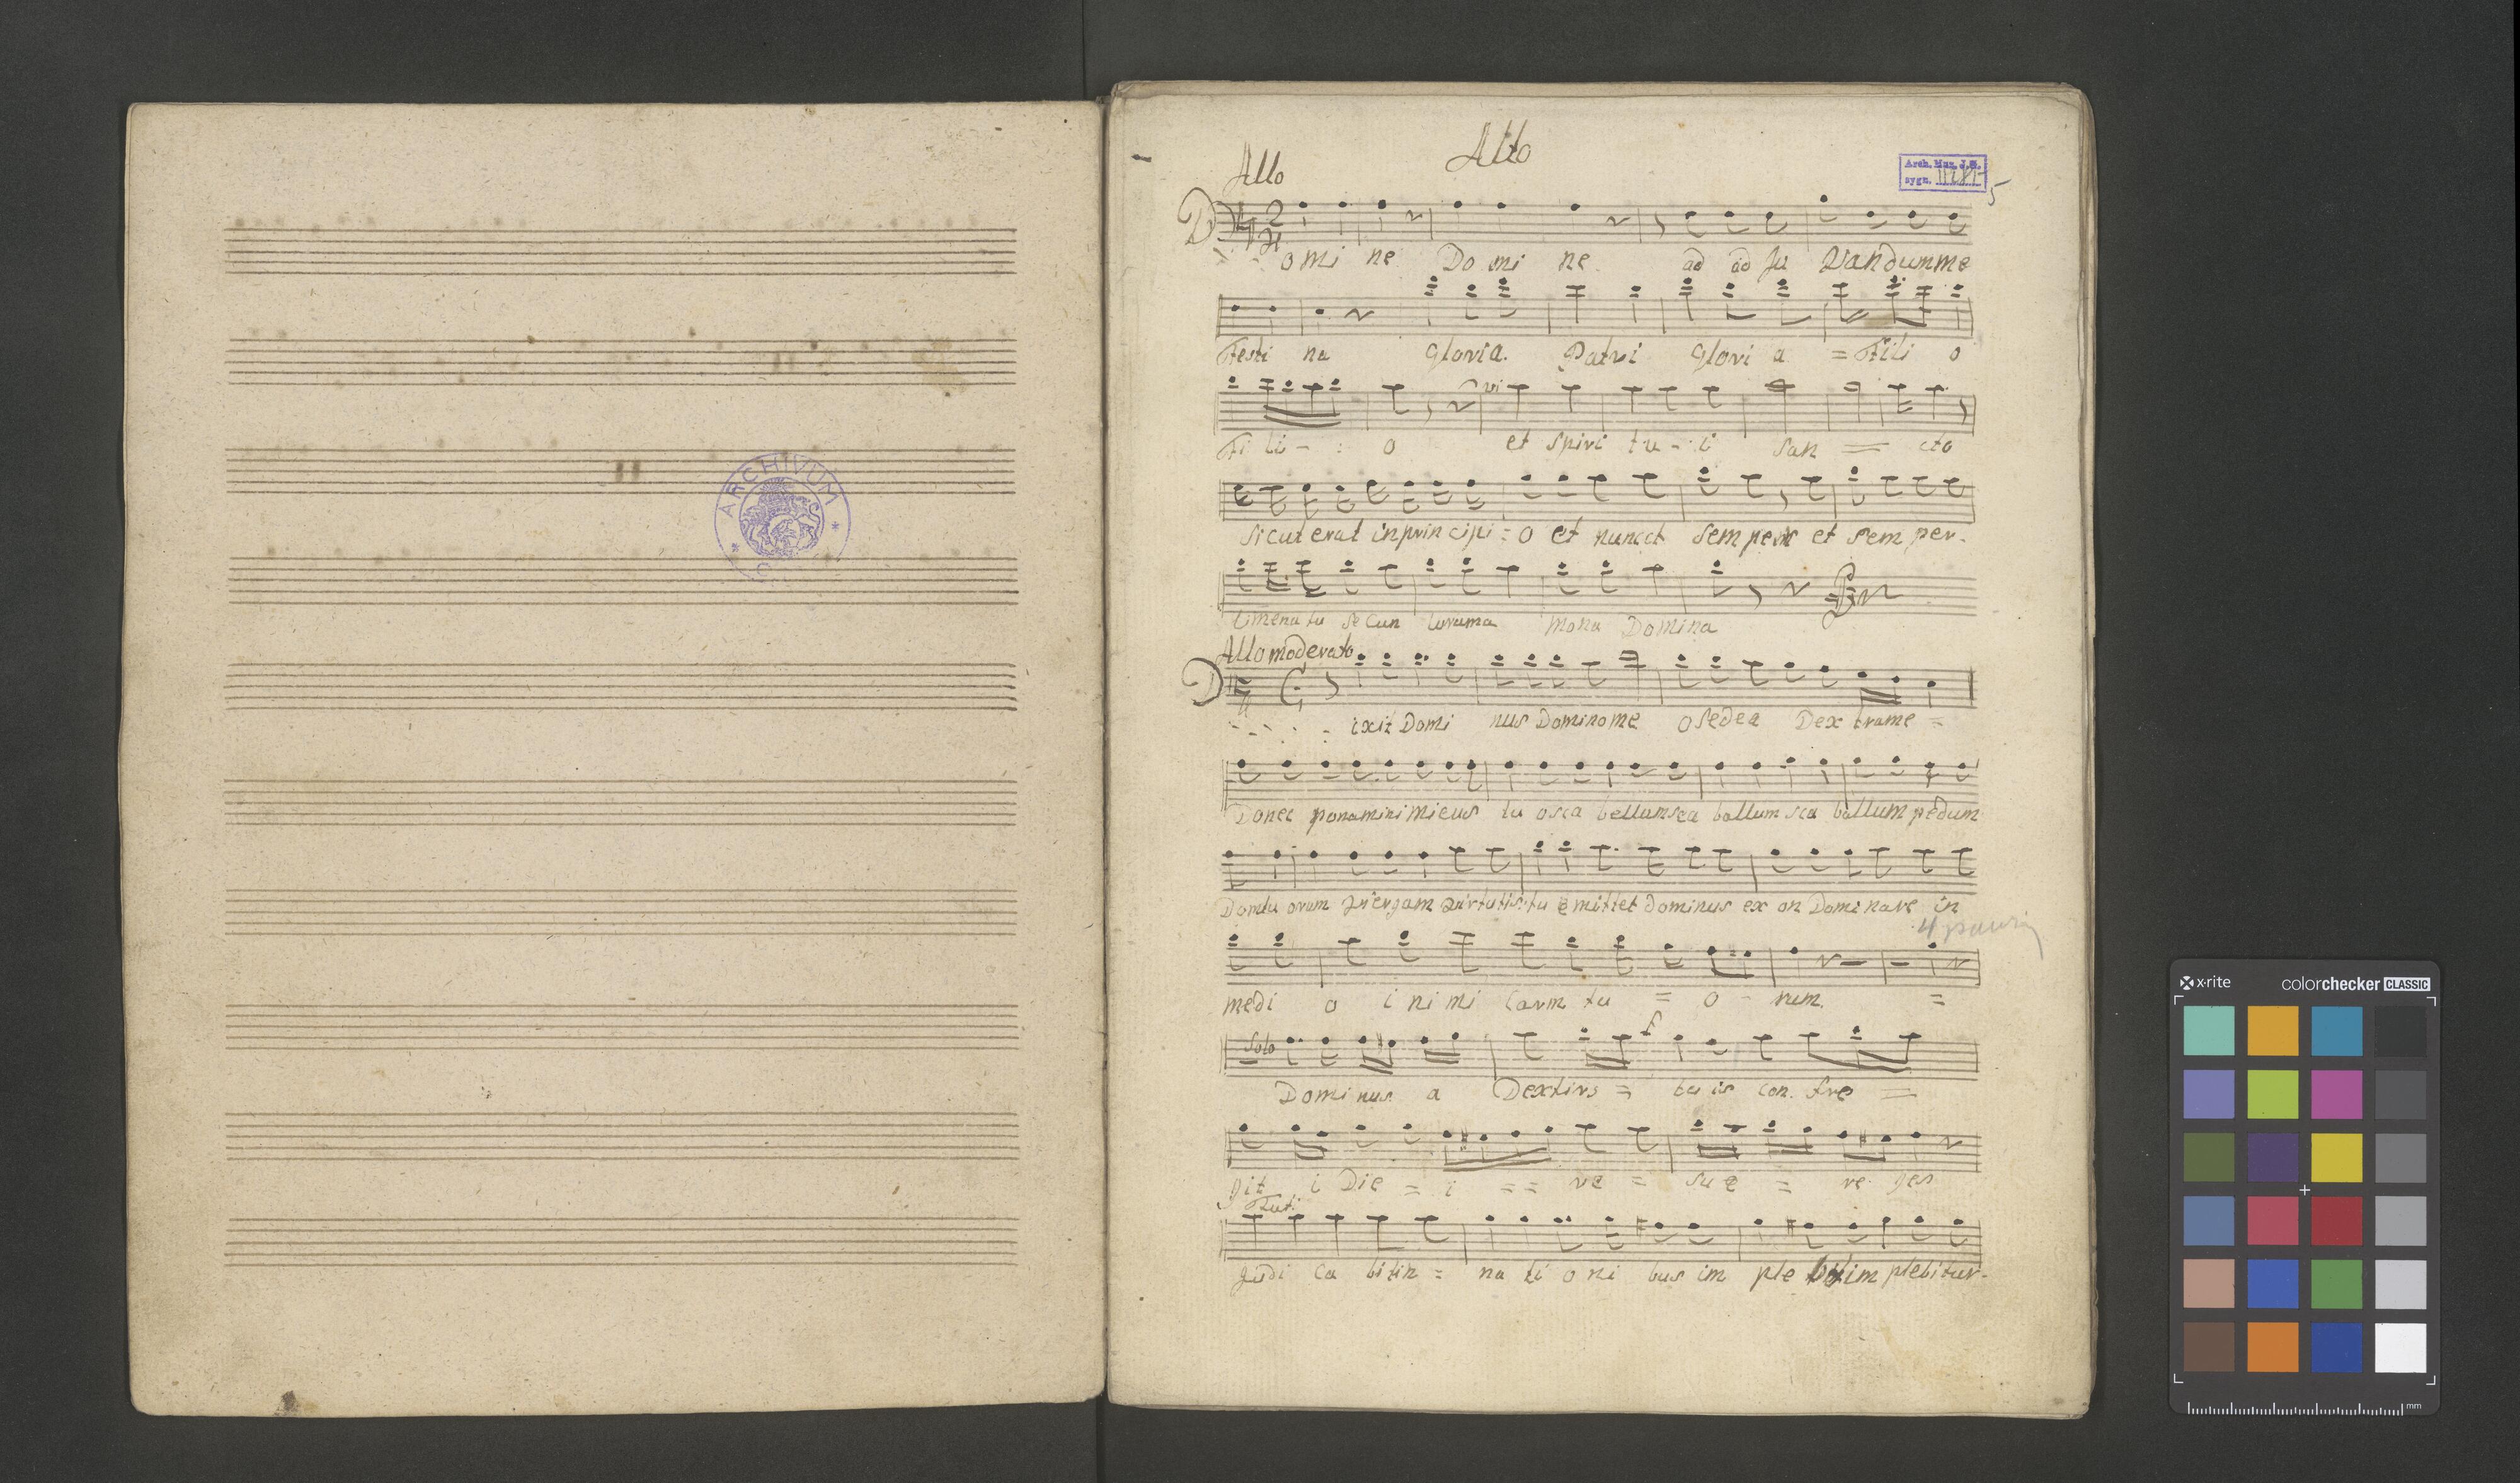 ARCHIVUM
Alto
Allo
Arch. Muz. J.G.
sygn.
5
D
2
4
omi ne Do mi ne ad ad Ju vandumme
Festi na Gloria. Patri Glori a = Fili o
Fi li - : o et spiri tu - i san = cto
sicut erat inprincipi = o et nuncet semper et sem per.
Domina
Allo moderato
D
ixit Domi nus Dominome o sedea Dex trame =
Donec ponaminimicus tu osca bellumsca ballum sca ballum pedum
virtutis tu emittet dominus ex on Domi nare in
4 pauzy
medi o i ni mi carm tu = o - rum. =
Solo
f
Dominus a Dextirs = tu is con. fre =
git i Die = i = = re = suæ = re ges
Tuti
Judi ca bitin = na ti o ni bus im ple im plebitur.
x-rite
colorchecker CLASSIC
mm